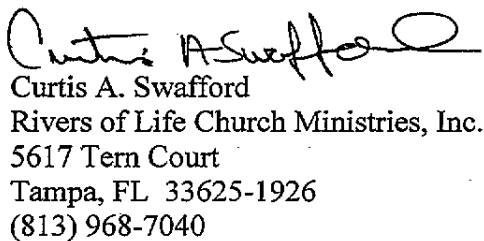 Curtis A Swafford
Curtis A. Swafford
Rivers of Life Church Ministries, Inc.
5617 Tern Court
Tampa, FL 33625-1926
(813) 968-7040